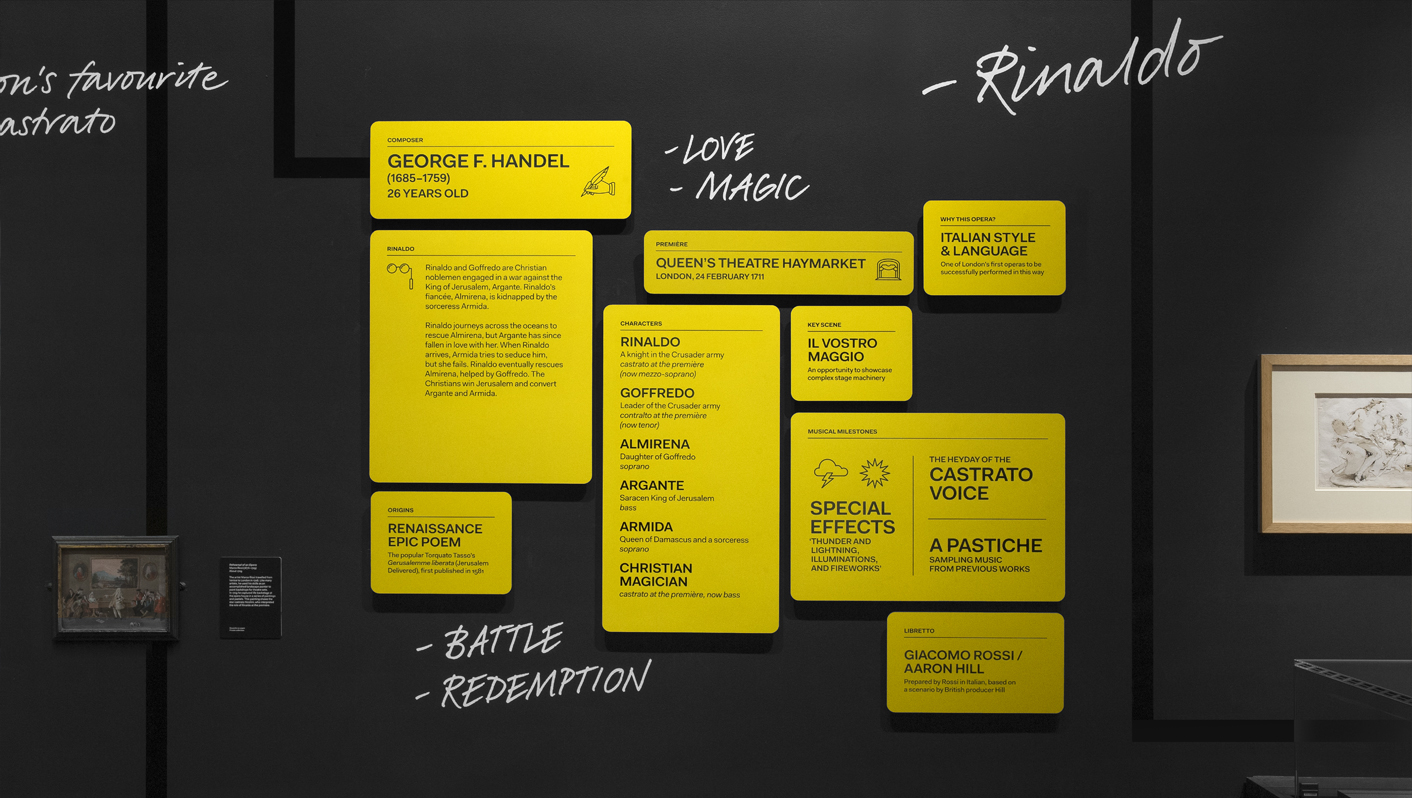 on's favourite
astrato
- Rinaldo
COMPOSER
GEORGE F. HANDEL
(1685–1759)
26 YEARS OLD
- LOVE
- MAGIC
RINALDO
Rinaldo and Goffredo are Christian
noblemen engaged in a war against the
King of Jerusalem, Argante. Rinaldo's
fiancée, Almirena, is kidnapped by the
sorceress Armida.
Rinaldo journeys across the oceans to
rescue Almirena, but Argante has since
fallen in love with her. When Rinaldo
arrives, Armida tries to seduce him,
but she fails. Rinaldo eventually rescues
Almirena, helped by Goffredo. The
Christians win Jerusalem and convert
Argante and Armida.
ORIGINS
RENAISSANCE
EPIC POEM
The popular Torquato Tasso's
Gerusalemme liberata (Jerusalem
Delivered), first published in 1581
- BATTLE
- REDEMPTION
PREMIÈRE
QUEEN'S THEATRE HAYMARKET
LONDON, 24 FEBRUARY 1711
WHY THIS OPERA?
ITALIAN STYLE
& LANGUAGE
One of London's first operas to be
successfully performed in this way
CHARACTERS
RINALDO
A knight in the Crusader army
castrato at the première
(now mezzo-soprano)
GOFFREDO
Leader of the Crusader army
contralto at the première
(now tenor)
ALMIRENA
Daughter of Goffredo
soprano
ARGANTE
Saracen King of Jerusalem
bass
ARMIDA
Queen of Damascus and a sorceress
soprano
CHRISTIAN
MAGICIAN
castrato at the première, now bass
KEY SCENE
IL VOSTRO
MAGGIO
An opportunity to showcase
complex stage machinery
MUSICAL MILESTONES
SPECIAL
EFFECTS
'THUNDER AND
LIGHTNING,
ILLUMINATIONS,
AND FIREWORKS'
THE HEYDAY OF THE
CASTRATO
VOICE
A PASTICHE
SAMPLING MUSIC
FROM PREVIOUS WORKS
LIBRETTO
GIACOMO ROSSI /
AARON HILL
Prepared by Rossi in Italian, based on
a scenario by British producer Hill